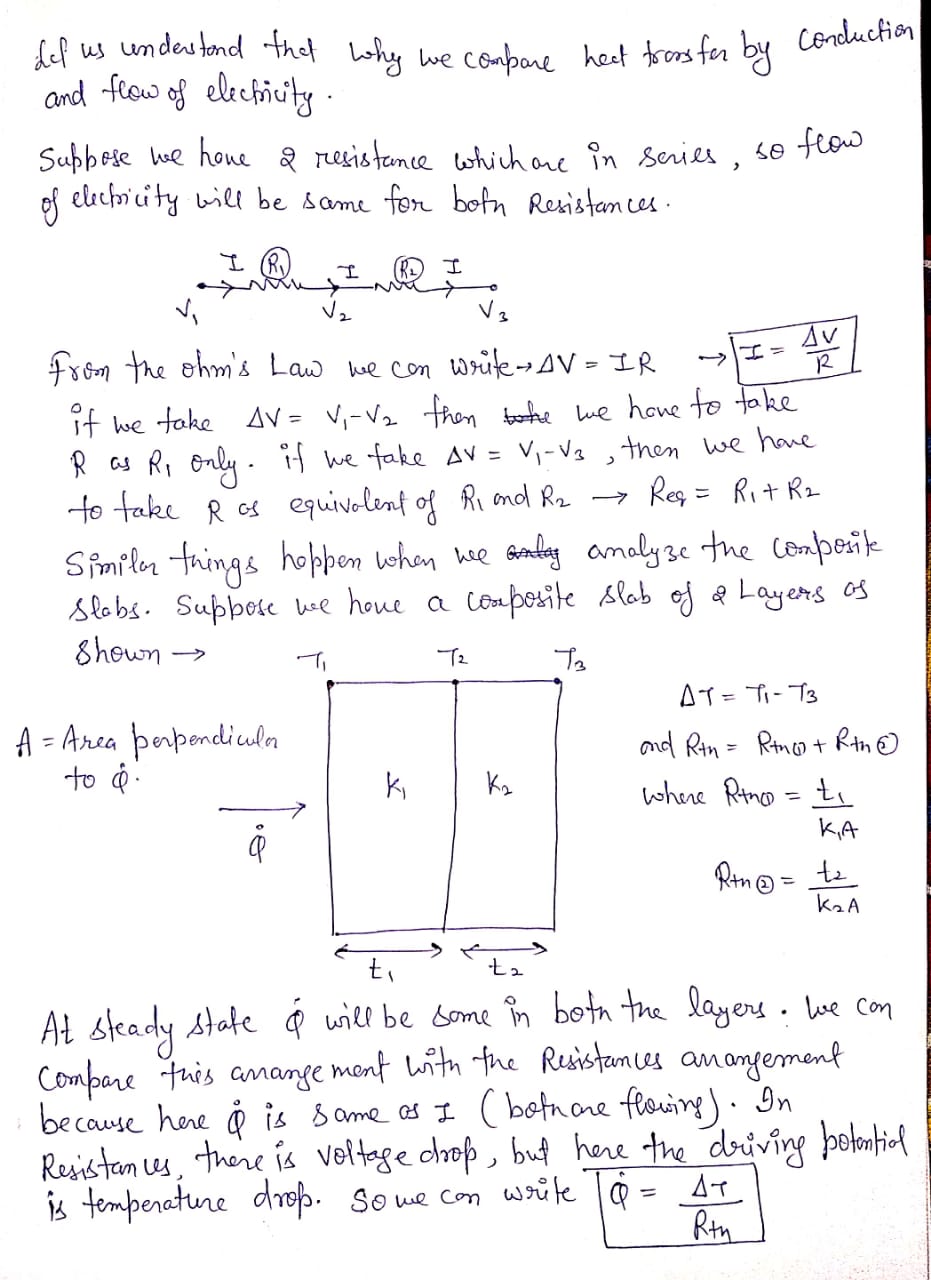 Let us understand that why we compare heat transfer by conduction
and flow of electricity.
Suppose we have 2 resistance which are in series, so flow
of electricity will be same for both Resistances.
I R1 I R2 I
V1 V2 V3
From the ohm's Law we can write → ΔV = IR → I = ΔV/R
if we take ΔV = V1-V2 then we have to take
R as R1 only. if we take ΔV = V1-V3, then we have
to take R as equivalent of R1 and R2 → Req = R1 + R2
Similar things happen when we analyze the composite
slabs. Suppose we have a composite slab of 2 Layers as
shown →
T1 T2 T3
ΔT = T1 - T3
A = Area perpendicular
to Q̇.
and Rth = Rth① + Rth②
K1 K2
where Rth① = t1/K1A
Q̇
Rth② = t2/K2A
t1 t2
At steady state Q̇ will be same in both the layers. We can
compare this arrangement with the Resistances arrangement
because here Q̇ is same as I (both are flowing). In
Resistances, there is voltage drop, but here the driving potential
is temperature drop. So we can write Q̇ = ΔT/Rth